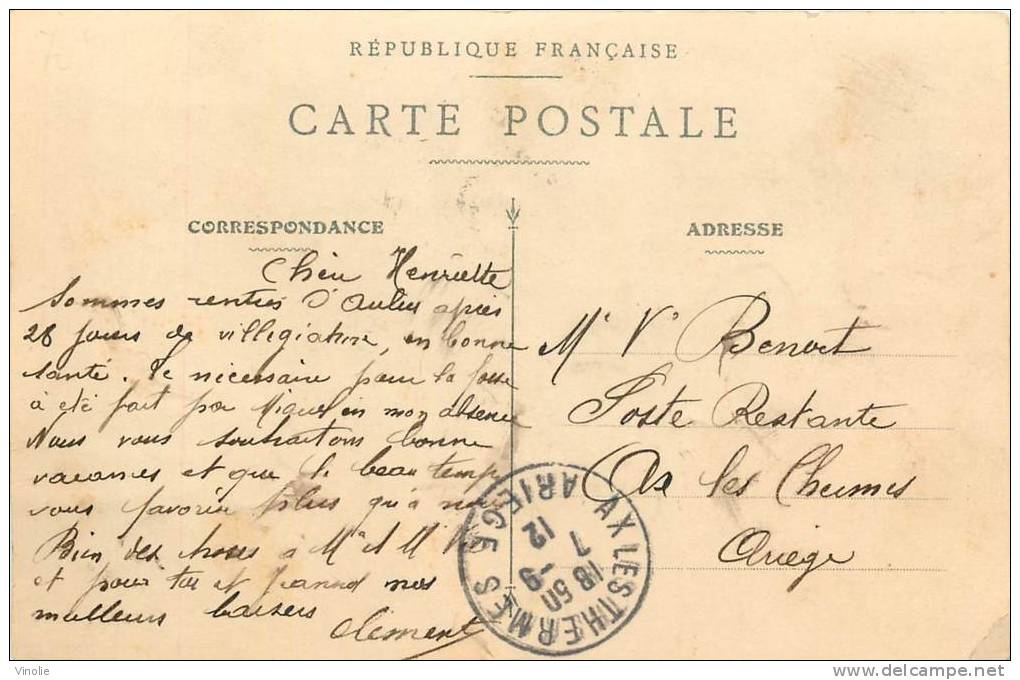 RÉPUBLIQUE FRANÇAISE
CARTE POSTALE
CORRESPONDANCE
Chère Henriette
Sommes rentrés d'Aulus après
28 jours de villégiature, en bonne
santé. Le nécessaire pour la fosse
a été fait par Miquel en mon absence
Nous vous souhaitons bonne
vacances et que le beau temps
vous favorise plus qu'à nous
Bien des choses à Me et M V
et pour toi et Jeanne nos
meilleurs baisers
Clément
ADRESSE
Me Ve Benoit
Poste Restante
Ax les Thermes
Ariège
AX LES THERMES
ARIEGE
18 50
7 -9
12
Vinolie
delcampe.net